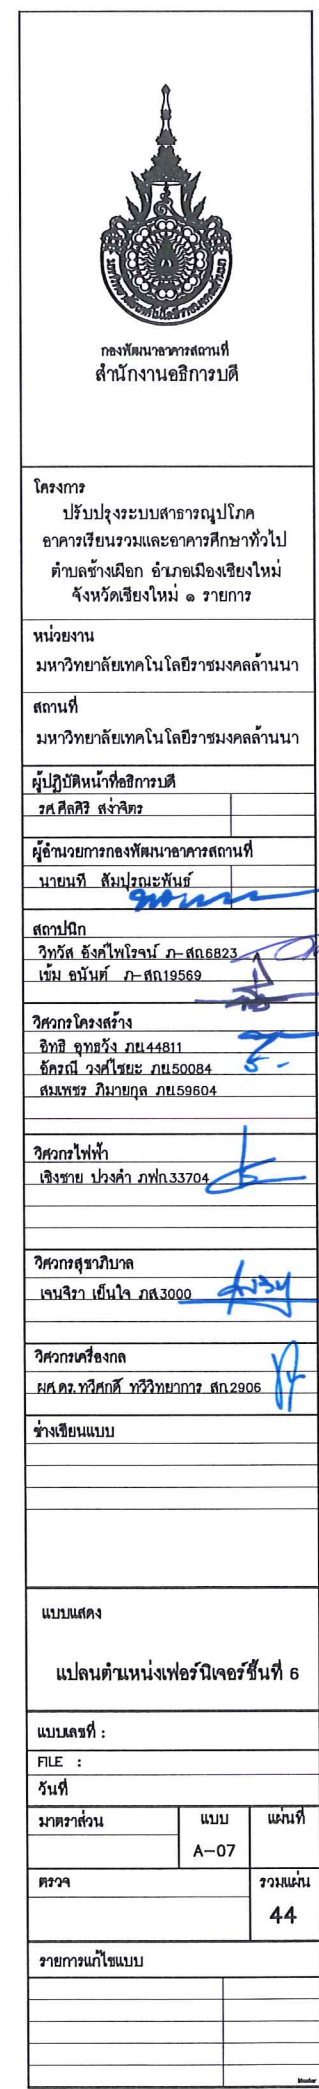 กองพัฒนาอาคารสถานที่
สำนักงานอธิการบดี
โครงการ
ปรับปรุงระบบสาธารณุปโภค
อาคารเรียนรวมและอาคารศึกษาทั่วไป
ตำบลช้างเผือก อำเภอเมืองเชียงใหม่
จังหวัดเชียงใหม่ ๑ รายการ
หน่วยงาน
มหาวิทยาลัยเทคโนโลยีราชมงคลล้านนา
สถานที่
มหาวิทยาลัยเทคโนโลยีราชมงคลล้านนา
ผู้ปฏิบัติหน้าที่อธิการบดี
รศ.ศีลศิริ สง่าจิตร
ผู้อำนวยการกองพัฒนาอาคารสถานที่
นายนที สัมปุรณะพันธ์
สถาปนิก
วิทวัส อังศุไพโรจน์ ภ-สถ.6823
เข้ม อนันต์ ภ-สถ.19569
วิศวกรโครงสร้าง
อิทธิ อุทธวัง ภย.44811
อัครณี วงศ์ไชยะ ภย.50084
สมเพชร ภิมายกุล ภย.59604
วิศวกรไฟฟ้า
เชิงชาย ปวงคำ ภฟก.33704
วิศวกรสุขาภิบาล
เจนจิรา เย็นใจ ภส.3000
วิศวกรเครื่องกล
ผศ.ดร.ทวีศกดิ์ ทวีวิทยาการ สก.2906
ช่างเขียนแบบ
แบบแสดง
แปลนตำแหน่งเฟอร์นิเจอร์ชั้นที่ 6
แบบเลขที่ :
FILE :
วันที่
มาตราส่วน แบบ แผ่นที่
A-07
ตรวจ รวมแผ่น
44
รายการแก้ไขแบบ